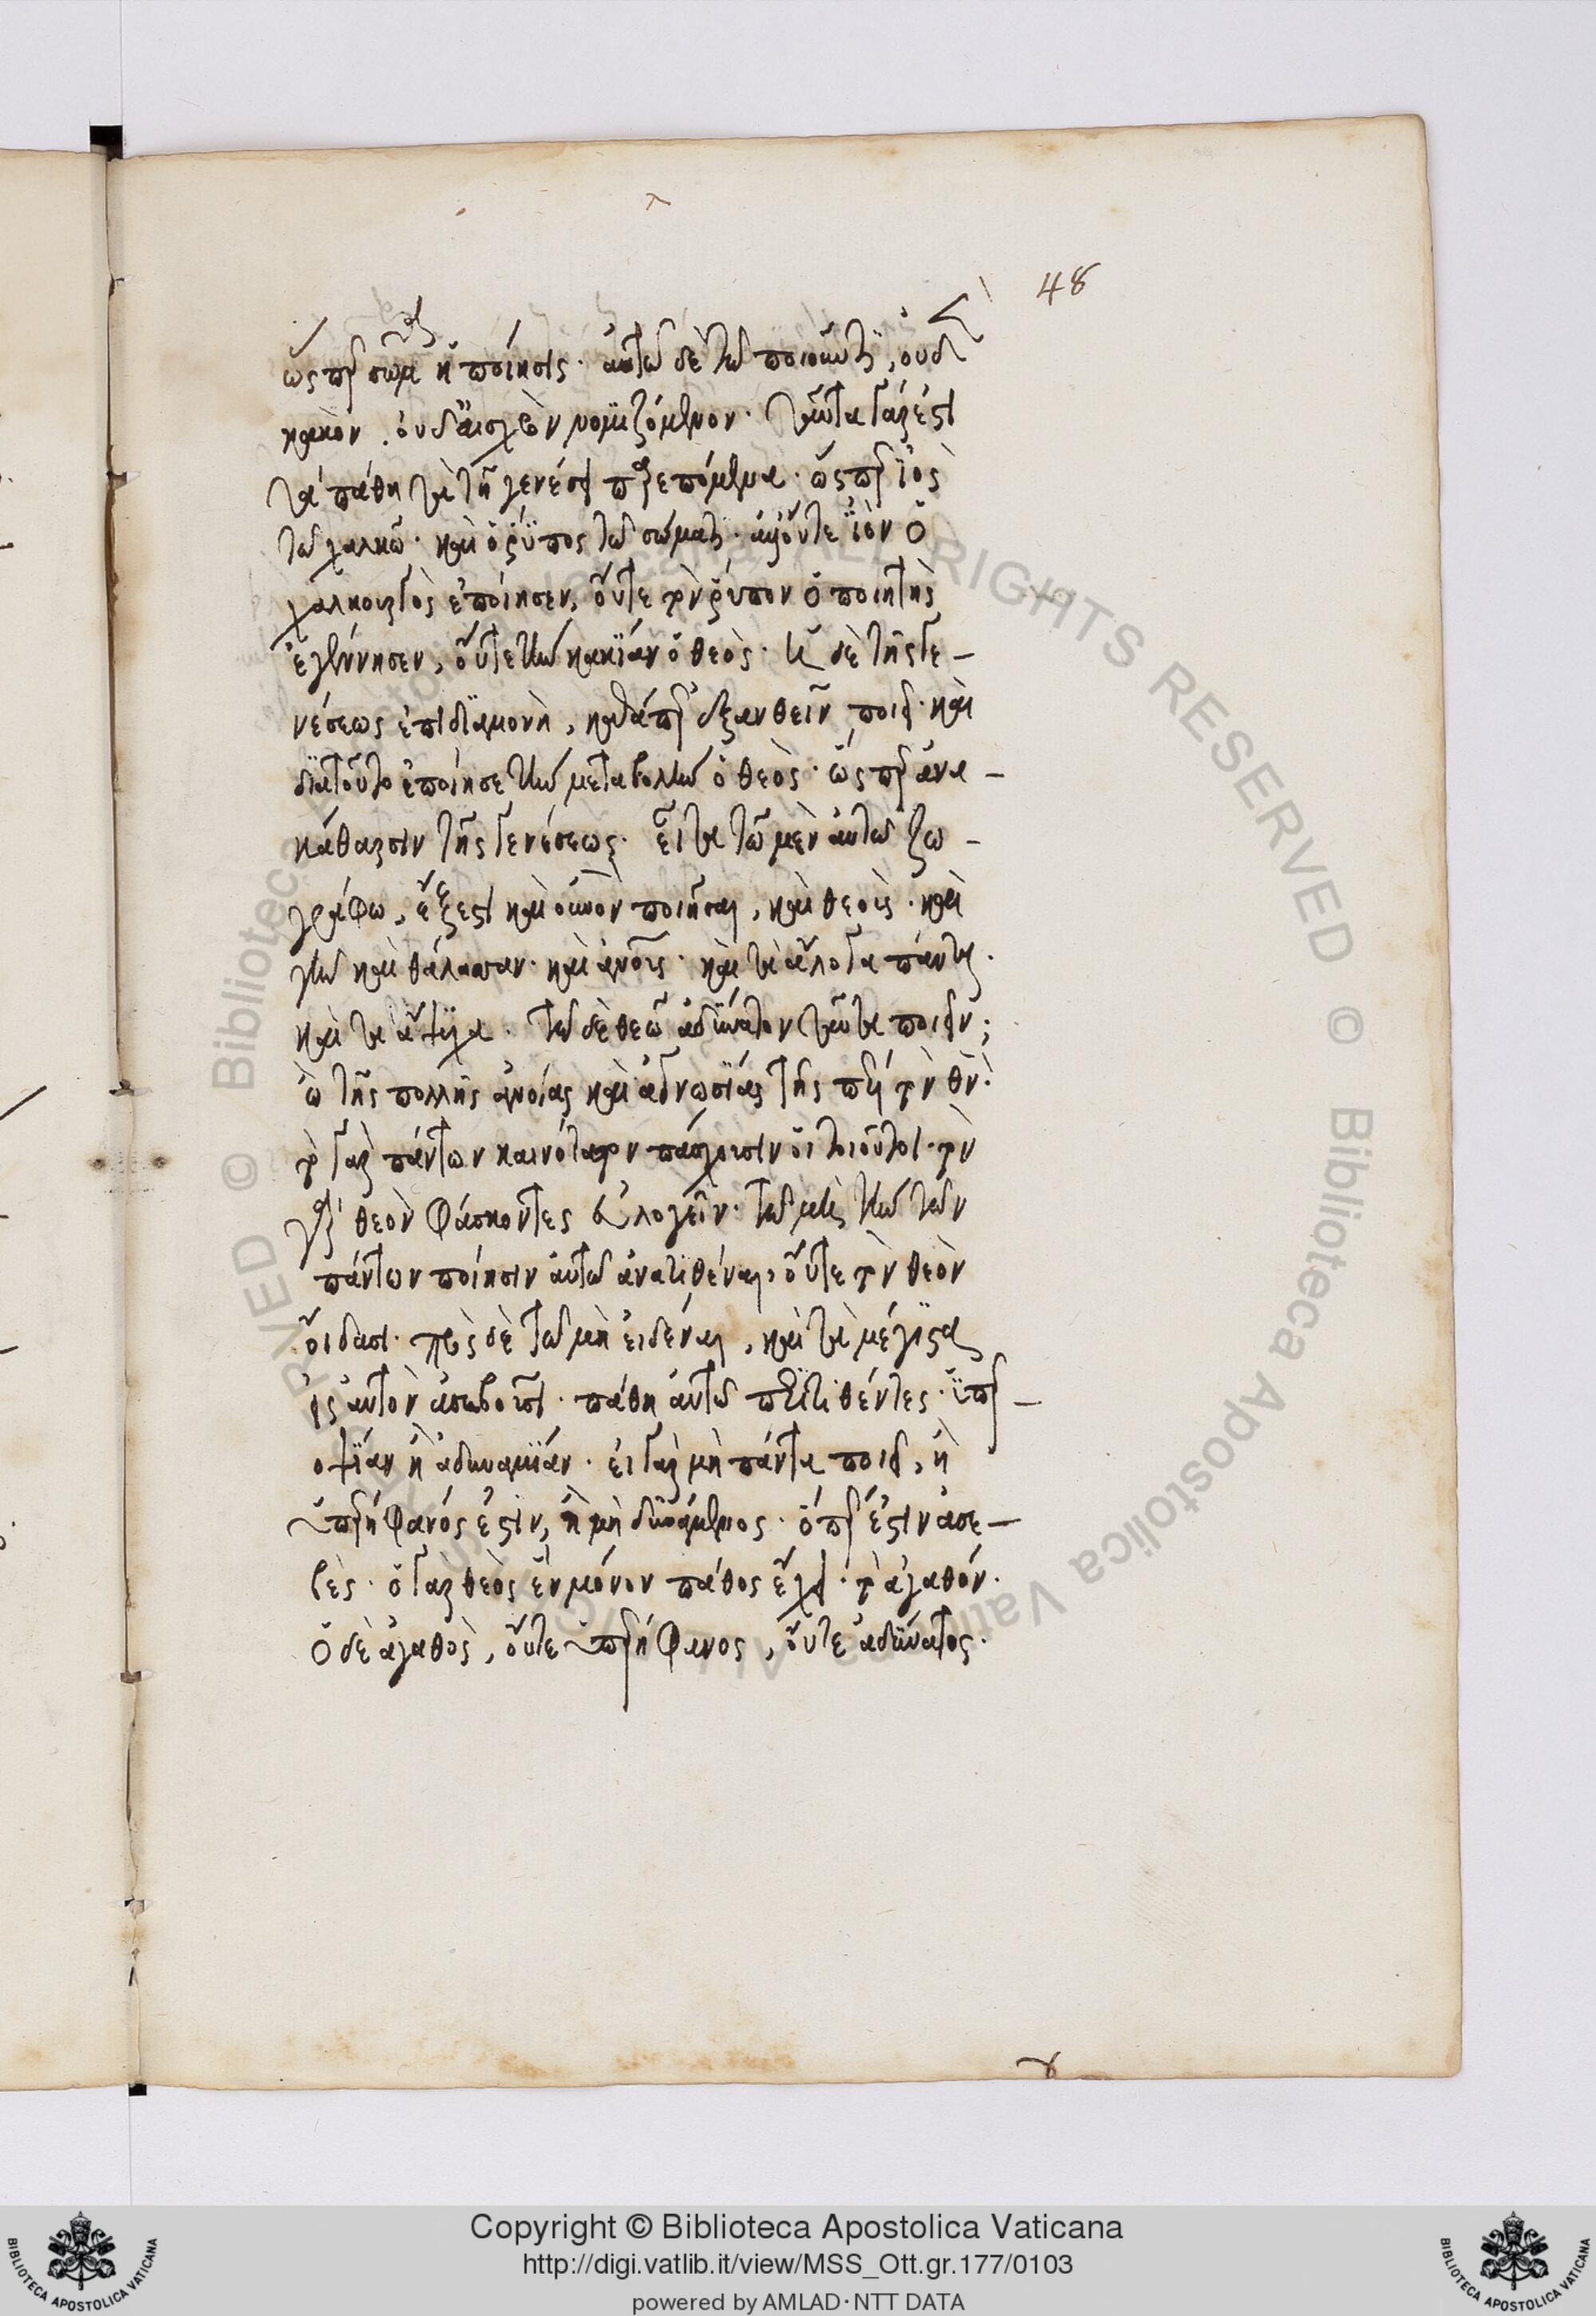 48
ὥσπερ σῶμα ἡ ποίησις. αὐτῶ δὲ τῶ ποιοῦντι, οὐδὲν
κακὸν. οὐδ' αἰσχρὸν νομιζόμενον. ταῦτα γάρ ἐστι
τὰ πάθη τὰ τῆ γενέσει παρεπόμενα. ὥσπερ ἰὸς
τῶ χαλκῶ. καὶ ὁ ῥύπος τῶ σώματι. ἀλλ' οὔτε ἰὸν ὁ
χαλκουργὸς ἐποίησεν, οὔτε τὸν ῥύπον ὁ ποιητὴς
ἐγέννησεν, οὔτε τὴν κακίαν ὁ θεὸς. ἡ δὲ τῆς γε-
νέσεως ἐπιδιαμονὴ, καθάπερ ἐξανθεῖν ποιεῖ. καὶ
διατοῦτο ἐποίησε τὴν μεταβολὴν ὁ θεὸς. ὥσπερ ἀνα-
κάθαρσιν τῆς γενέσεως. εἶτα τῶ μὲν αὐτῶ ζω-
γράφω, ἔξεστι καὶ οὐνὸν ποιῆσαι, καὶ θεοὺς. καὶ
γῆν καὶ θάλασσαν. καὶ ἀνους. καὶ τὰ ἄλογα πάντα.
καὶ τὰ ἄψυχα. τῶ δὲ θεῶ ἀδύνατον ταῦτα ποιεῖν;
ὢ τῆς πολλῆς ἀνοίας καὶ ἀγνωσίας τῆς περὶ τὸν θν.
τὸ γὰρ πάντων καινότατον πάσχουσιν οἱ τοιοῦτοι. τὸν
γὰρ θεὸν φάσκοντες εὐλογεῖν. τῶ μὴ τὴν τῶν
πάντων ποίησιν αὐτῶ ἀνατιθέναι, οὔτε τὸν θεὸν
οἴδασι. πρὸς δὲ τῶ μὴ εἰδέναι, καὶ τὰ μέγιστα
εἰς αὐτὸν ἀσεβοῦσι. πάθη αὐτῶ περιτιθέντες. ὑπερ-
οψίαν ἢ ἀδυναμίαν. εἰ γὰρ μὴ πάντα ποιεῖ, ἢ
ὑπερήφανός ἐστιν, ἢ μὴ δυνάμενος. ὅπερ ἐστὶν ἀσε-
βὲς. ὁ γὰρ θεὸς ἓν μόνον πάθος ἔχει. τὸ ἀγαθόν.
ὁ δὲ ἀγαθὸς, οὔτε ὑπερήφανος, οὔτε ἀδύνατος.
Copyright © Biblioteca Apostolica Vaticana
http://digi.vatlib.it/view/MSS_Ott.gr.177/0103
powered by AMLAD·NTT DATA